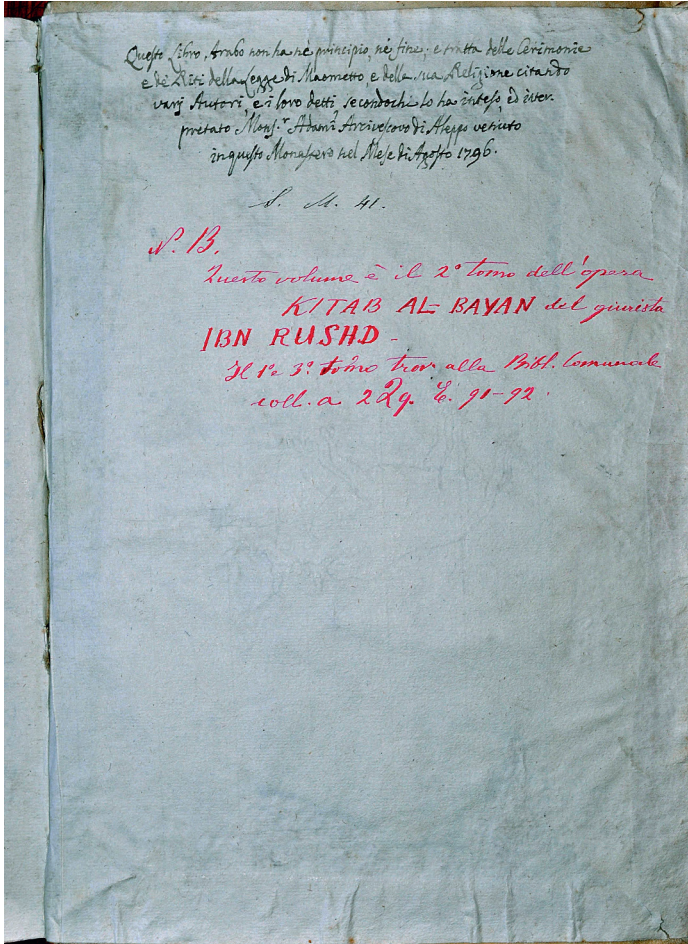 Questo Libro Arabo non ha nè principio, nè fine; e tratta delle Cerimonie
e de Riti della Legge di Maometto, e della sua Religione citando
varj Autori, e i loro detti secondochè lo ha inteso, ed inter-
pretato Mons.r Adami Arcivescovo di Aleppo venuto
in questo Monastero nel Mese di Agosto 1796.
S. M. 41.
N. 13.
Questo volume è il 2° tomo dell'opera
KITAB AL-BAYAN del giurista
IBN RUSHD -
Il 1° e 3° tomo trov. alla Bibl. Comunale
coll. a 2Qq. E. 91-92.